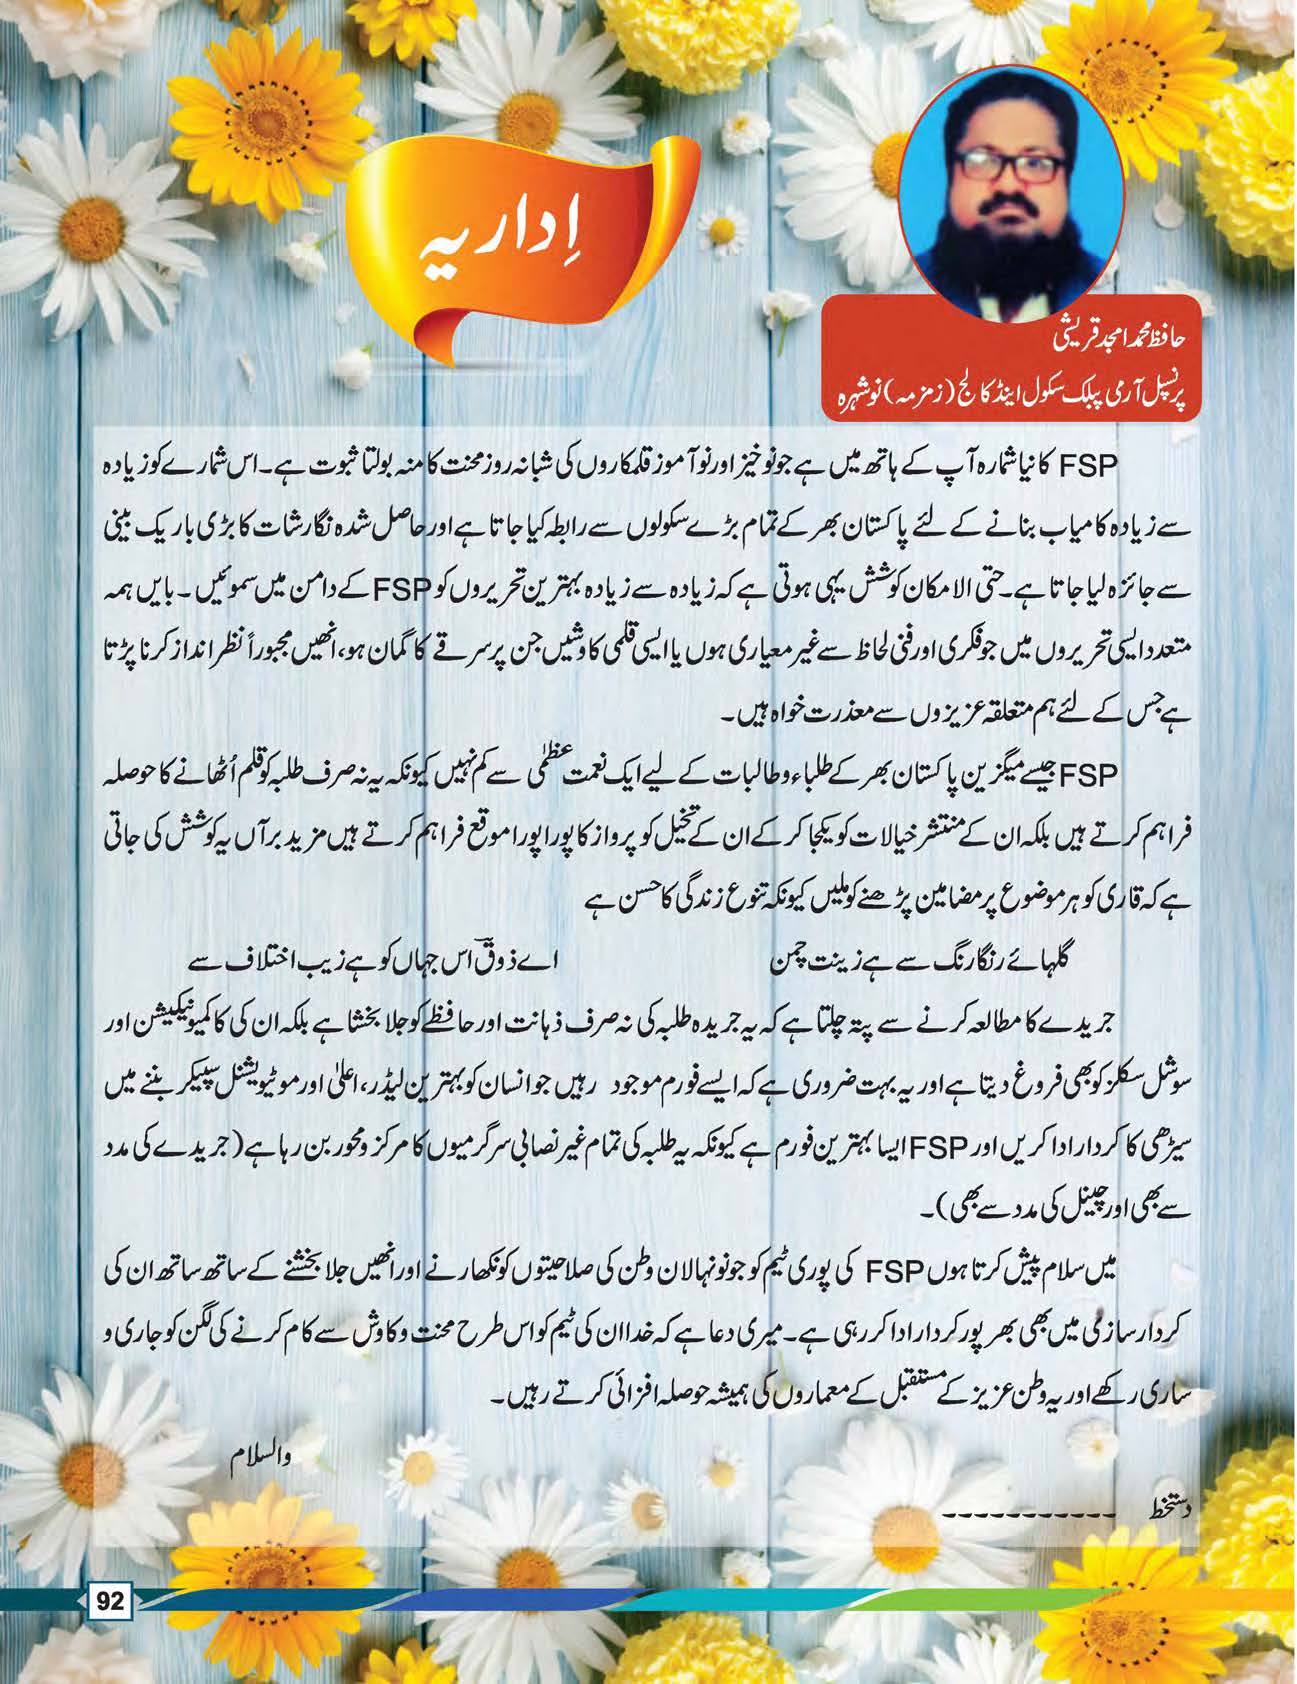 اِداریہ
حافظ محمد امجد قریشی
پرنسپل آرمی پبلک سکول اینڈ کالج (زمزمہ) نوشہرہ
FSP کا نیا شمارہ آپ کے ہاتھ میں ہے جو نوخیز اور نو آموز قلمکاروں کی شبانہ روز محنت کا منہ بولتا ثبوت ہے۔ اس شمارے کو زیادہ
سے زیادہ کامیاب بنانے کے لئے پاکستان بھر کے تمام بڑے سکولوں سے رابطہ کیا جاتا ہے اور حاصل شدہ نگارشات کا بڑی باریک بینی
سے جائزہ لیا جاتا ہے۔ حتی الامکان کوشش یہی ہوتی ہے کہ زیادہ سے زیادہ بہترین تحریروں کو FSP کے دامن میں سموئیں۔ بایں ہمہ
متعدد ایسی تحریروں میں جو فکری اور فنی لحاظ سے غیر معیاری ہوں یا ایسی قلمی کاوشیں جن پر سرقے کا گمان ہو، انھیں مجبوراً نظر انداز کرنا پڑتا
ہے جس کے لئے ہم متعلقہ عزیزوں سے معذرت خواہ ہیں۔
FSP جیسے میگزین پاکستان بھر کے طلباء و طالبات کے لیے ایک نعمت عظمٰی سے کم نہیں کیونکہ یہ نہ صرف طلبہ کو قلم اُٹھانے کا حوصلہ
فراہم کرتے ہیں بلکہ ان کے منتشر خیالات کو یکجا کر کے ان کے تخیل کو پرواز کا پورا پورا موقع فراہم کرتے ہیں مزید برآں یہ کوشش کی جاتی
ہے کہ قاری کو ہر موضوع پر مضامین پڑھنے کو ملیں کیونکہ تنوع زندگی کا حسن ہے
گلہائے رنگا رنگ سے ہے زینت چمن اے ذوقؔ اس جہاں کو ہے زیب اختلاف سے
جریدے کا مطالعہ کرنے سے پتہ چلتا ہے کہ یہ جریدہ طلبہ کی نہ صرف ذہانت اور حافظے کو جلا بخشتا ہے بلکہ ان کی کامیونیکیشن اور
سوشل سکلز کو بھی فروغ دیتا ہے اور یہ بہت ضروری ہے کہ ایسے فورم موجود رہیں جو انسان کو بہترین لیڈر، اعلیٰ اور موٹیویشنل سپیکر بننے میں
سیڑھی کا کردار ادا کریں اور FSP ایسا بہترین فورم ہے کیونکہ یہ طلبہ کی تمام غیر نصابی سرگرمیوں کا مرکز و محور بن رہا ہے (جریدے کی مدد
سے بھی اور چینل کی مدد سے بھی)۔
میں سلام پیش کرتا ہوں FSP کی پوری ٹیم کو جو نونہالان وطن کی صلاحیتوں کو نکھارنے اور انھیں جلا بخشنے کے ساتھ ساتھ ان کی
کردار سازی میں بھی بھر پور کردار ادا کر رہی ہے۔ میری دعا ہے کہ خدا ان کی ٹیم کو اس طرح محنت و کاوش سے کام کرنے کی لگن کو جاری و
ساری رکھے اور یہ وطن عزیز کے مستقبل کے معماروں کی ہمیشہ حوصلہ افزائی کرتے رہیں۔
والسلام
دستخط -----------
92